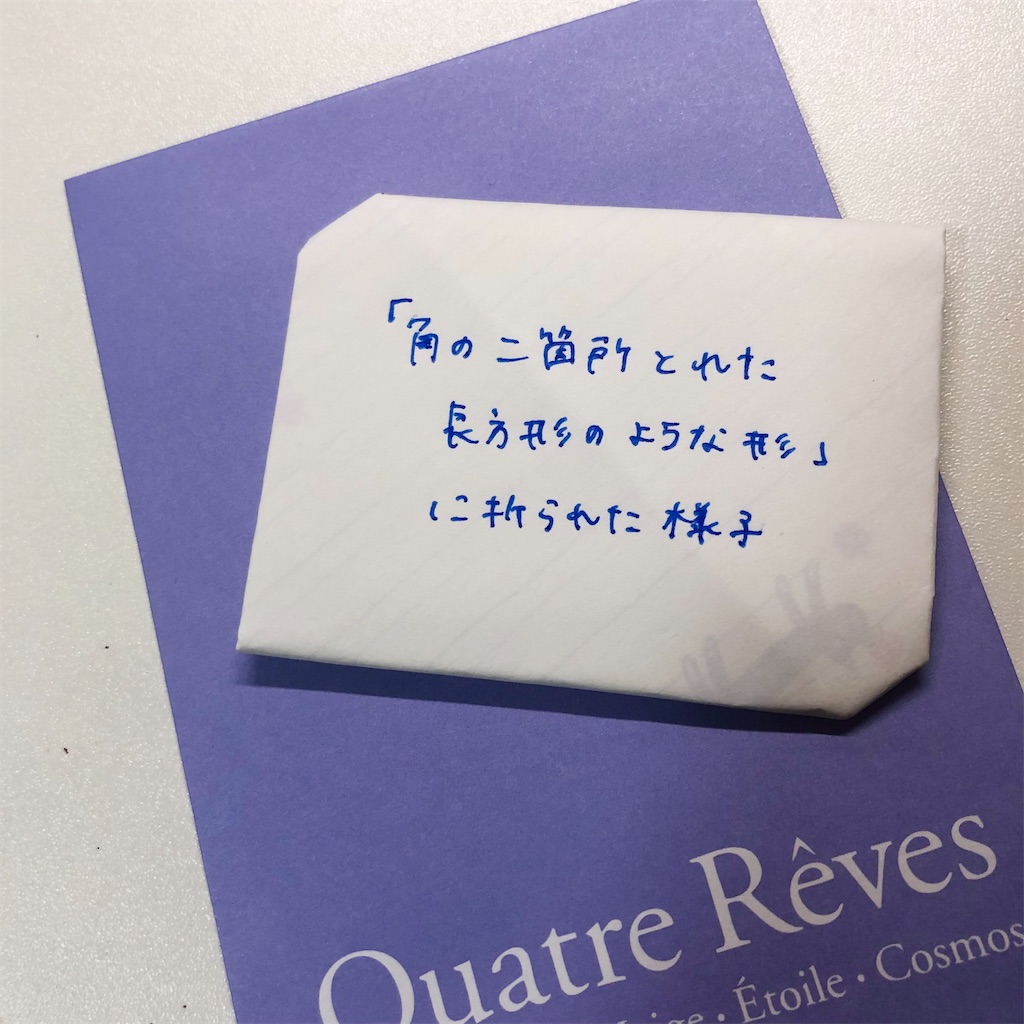 「角の二箇所とれた
長方形のような形」
に折られた様子
Quatre Rêves
Étoile・Cosmos